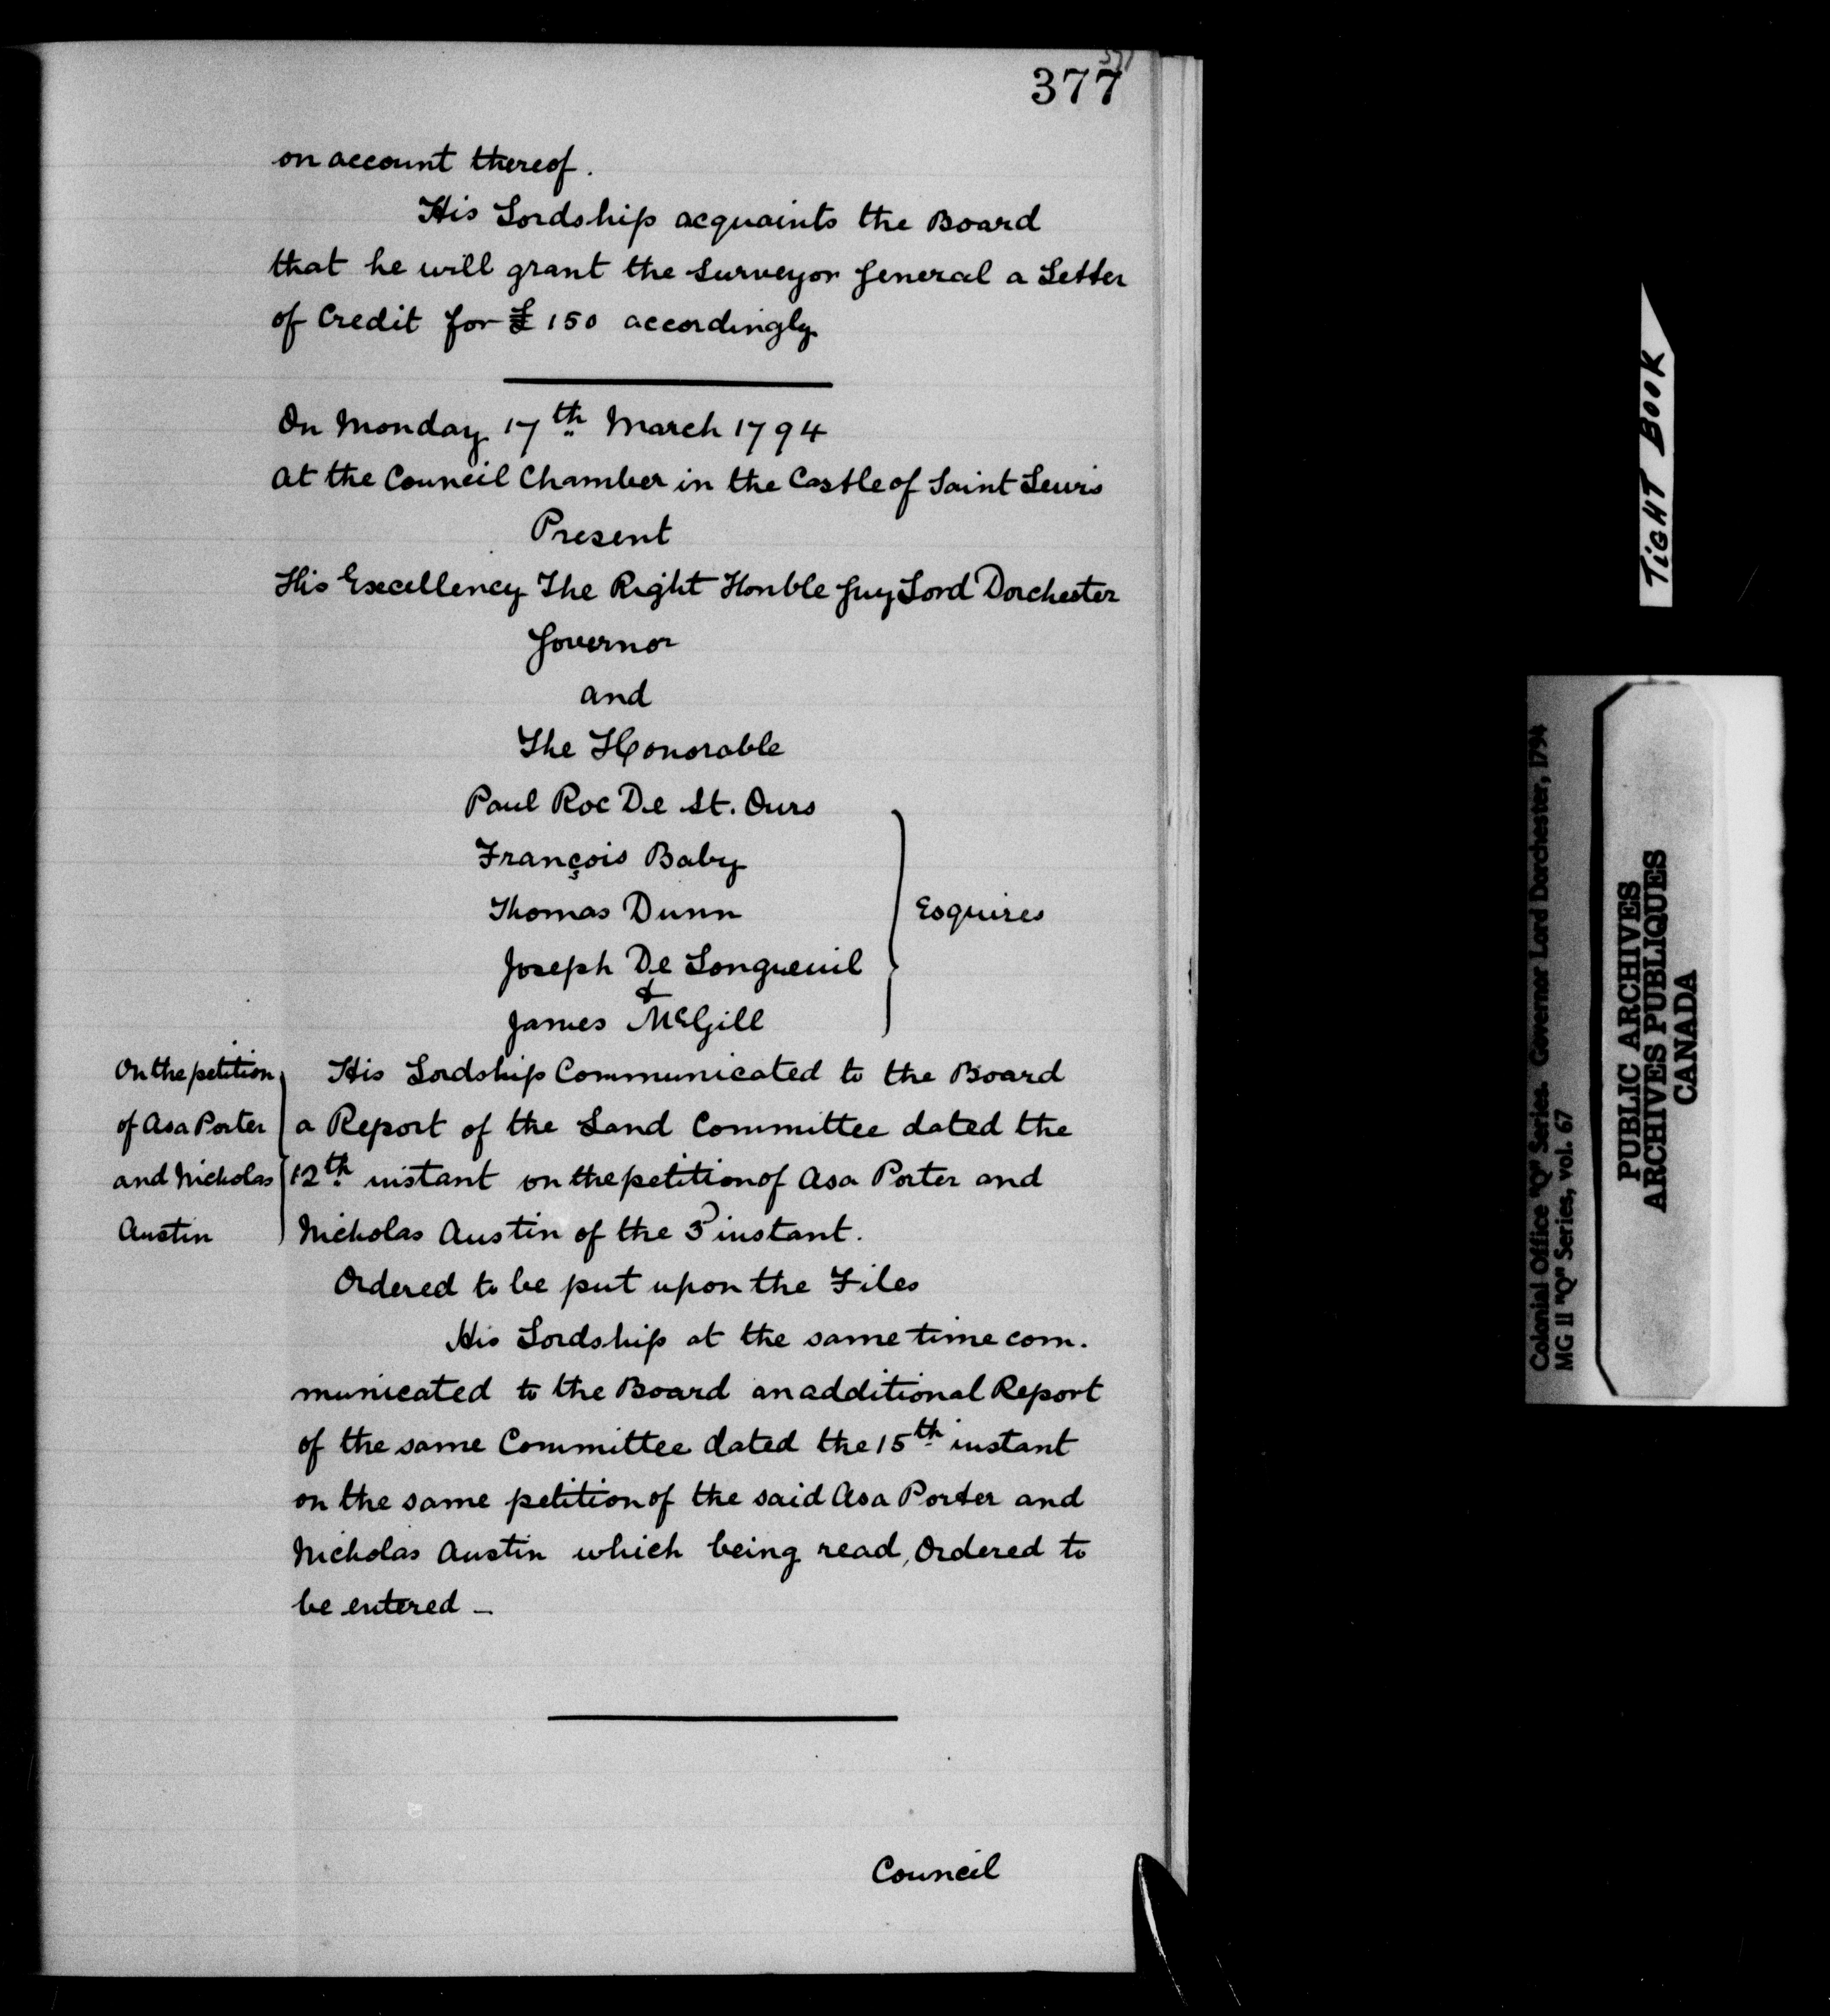 377
on account thereof.
His Lordship acquaints the Board
that he will grant the Surveyor General a Letter
of Credit for £150 accordingly
On Monday 17th March 1794
At the Council Chamber in the Castle of Saint Lewis
Present
His Excellency The Right Honble Guy Lord Dorchester
Governor
and
The Honorable
Paul Roc De St. Ours
François Baby
Thomas Dunn
Esquires
Joseph De Longueuil
&
James McGill
On the petition
of Asa Porter
and Nicholas
Austin
His Lordship Communicated to the Board
a Report of the Land Committee dated the
12th instant on the petition of Asa Porter and
Nicholas Austin of the 3 instant.
Ordered to be put upon the Files
His Lordship at the same time com.
municated to the Board an additional Report
of the same Committee dated the 15th instant
on the same petition of the said Asa Porter and
Nicholas Austin which being read, Ordered to
be entered -
Council
TIGHT BOOK
Colonial Office "Q" Series. Governor Lord Dorchester, 1794
MG 11 "Q" Series, vol. 67
PUBLIC ARCHIVES
ARCHIVES PUBLIQUES
CANADA